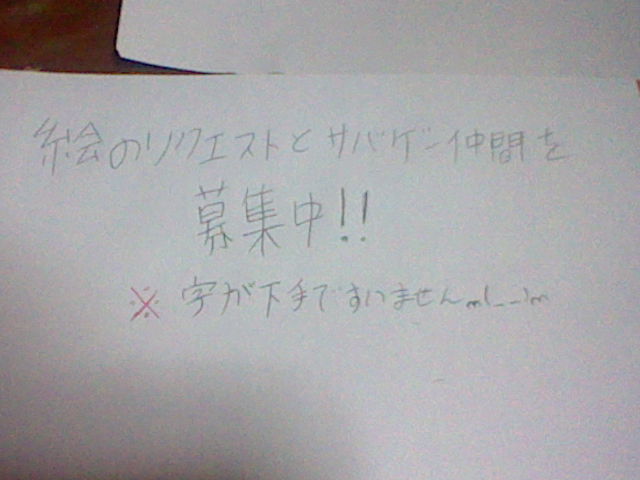 絵のリクエストとサバゲー仲間を
募集中!!
※ 字が下手ですいませんm(_ _)m